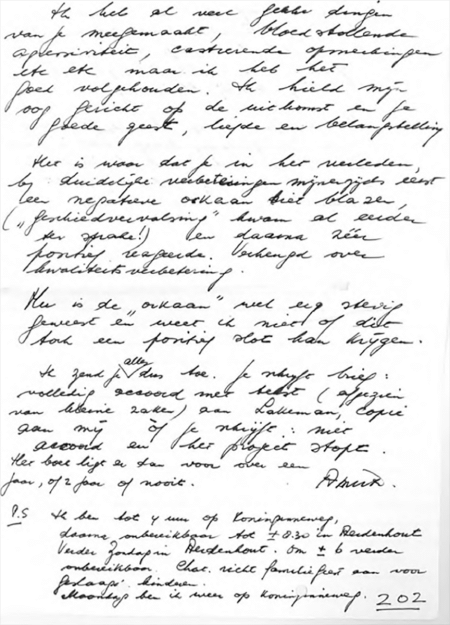 Ik heb al veel gekke dingen
van je meegemaakt, bloedstollende
agressiviteit, castrerende opmerkingen
etc etc maar ik heb het
goed volgehouden. Ik hield mijn
oog gericht op de uitkomst en je
goede geest, liefde en belangstelling
Het is waar dat je in het verleden,
bij duidelijke verbeteringen mijnerzijds eerst
een negatieve orkaan liet blazen,
("geschiedvervalsing" kwam al eerder
ter sprake!) en daarna zéér
positief reageerde. Verheugd over
kwaliteitsverbetering.
Nu is de "orkaan" wel erg stevig
geweest en weet ik niet of dit
toch een positief slot kan krijgen.
Ik zend je alles dus toe. Je schrijft brief:
volledig accoord met tekst (afgezien
van kleine zaken) aan Lakeman, copie
aan mij of je schrijft: niet
accoord en het project stopt.
Het boek ligt er dan voor over een
jaar, of 2 jaar of nooit.
P.S Ik ben tot 4 uur op Koninginneweg,
daarna onbereikbaar tot ± 8.30 in Aerdenhout
Verder Zondag in Aerdenhout. Om ± 6 verder
onbereikbaar. Chat. richt familiefeest aan voor
geslaagde kinderen.
Maandag ben ik weer op Koninginneweg.
202